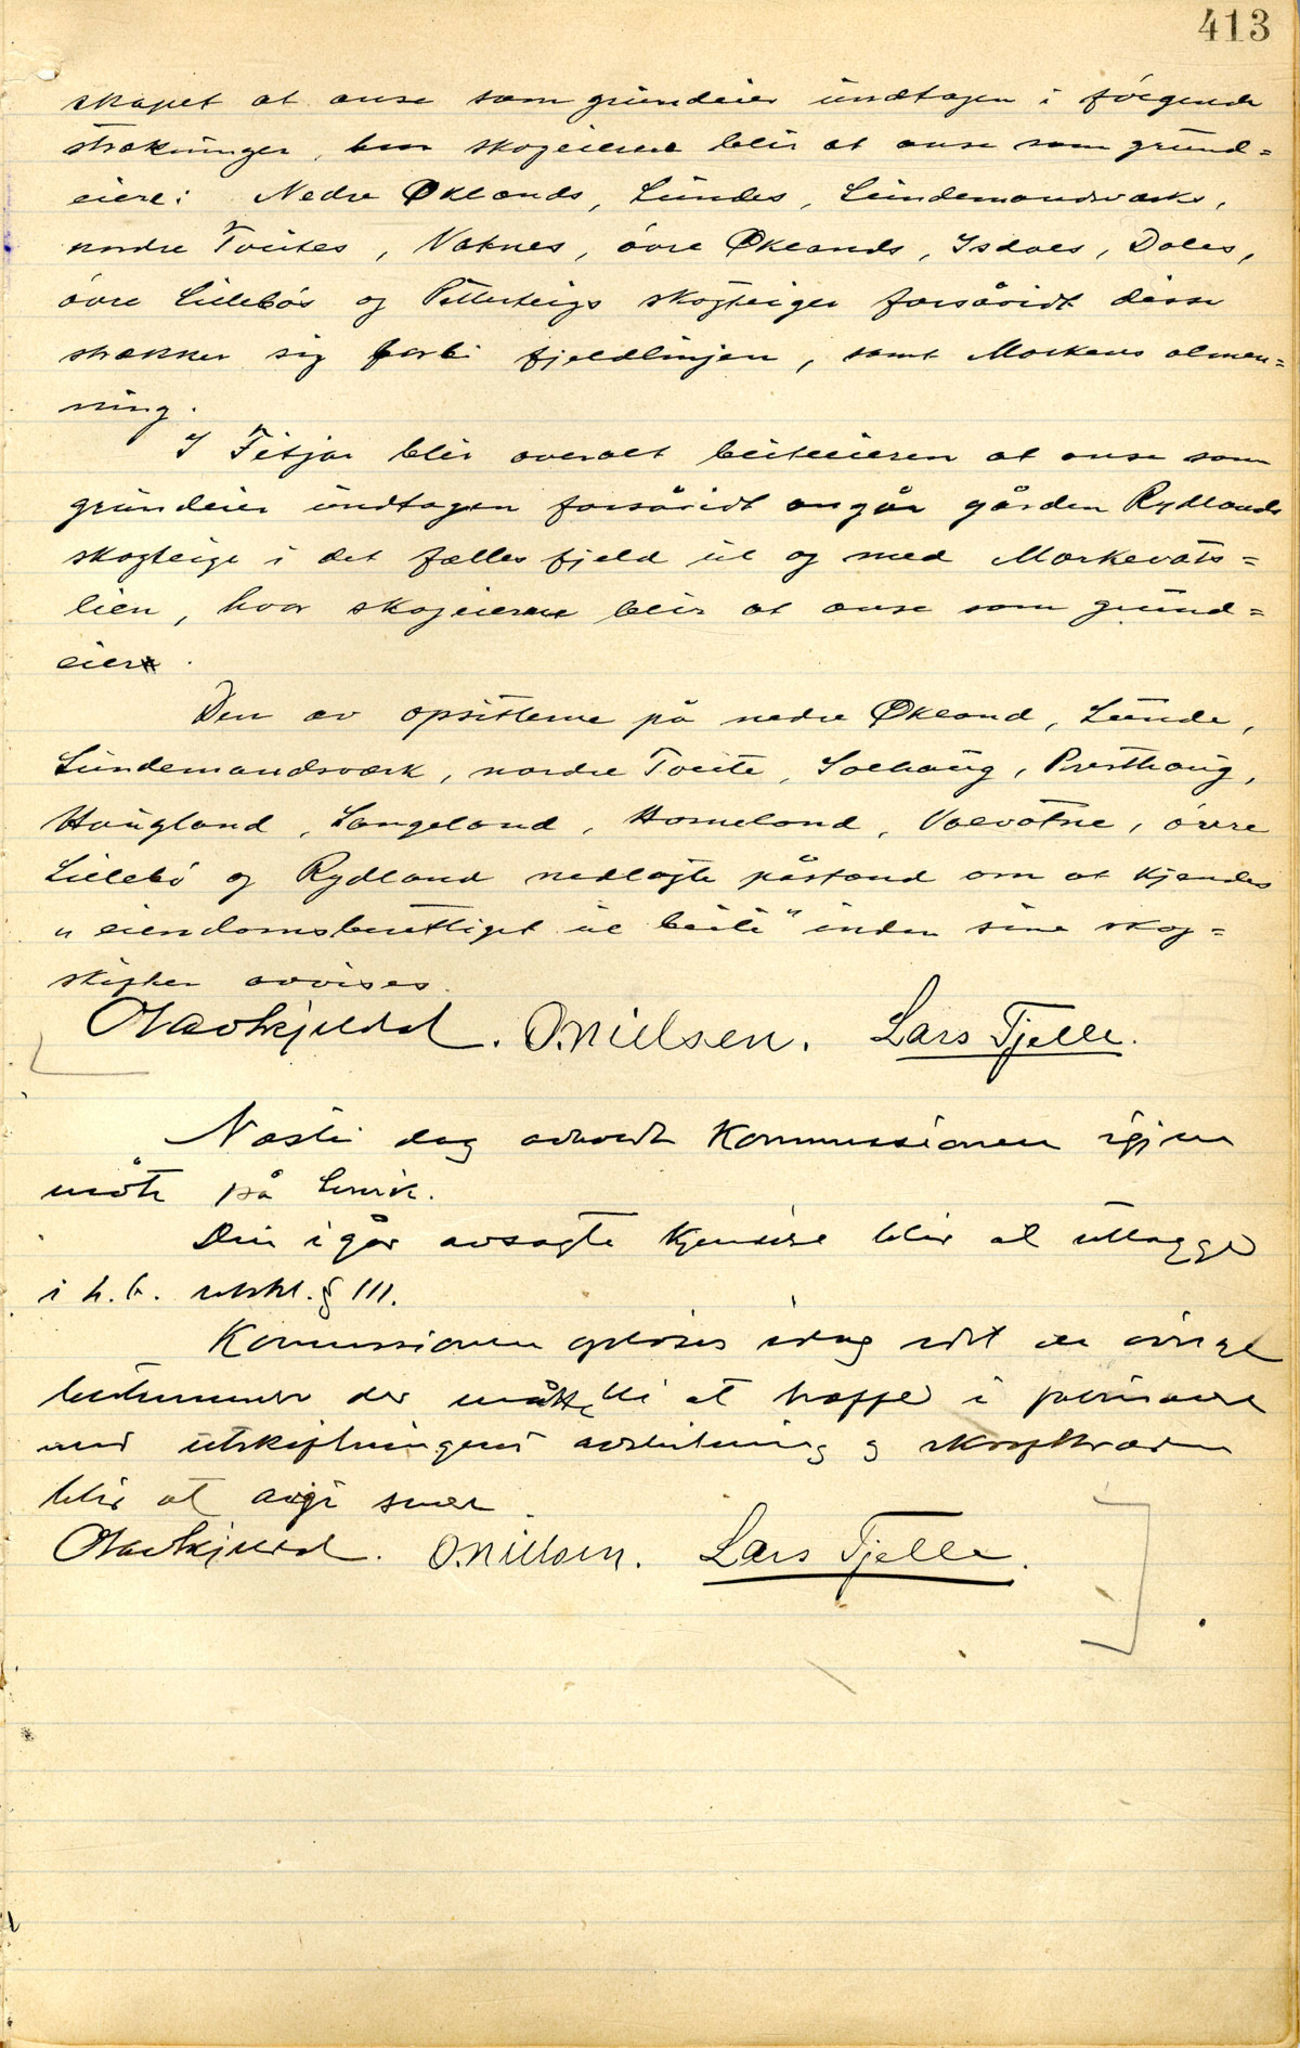 413
skapet at anse som grundeier undtagen i følgende
strækninger, hvor skogeierne blir at anse som grund=
eiere: Nedre Øklands, Lundes, Lundemandsværks,
nordre Tveites, Vatnes, övre Øklands, Isdals, Dales,
övre Lillebös og Petterteigs skogteiger forsåvidt disse
strækker sig forbi fjeldlinjen, samt Morkens almen=
ning.
I Fitjar blir overalt beiteieren at anse som
grundeier undtagen forsåvidt angår gården Rydlands
skogteige i det fælles fjeld til og med Morkevats=
lien, hvor skogeierne blir at anse som grund=
eier.
Den av opsitterne på nedre Økland, Lunde,
Lundemandsværk, nordre Tveite, Solhaug, Presthaug,
Haugland, Langeland, Hommeland, Valvatne, övre
Lillebö og Rydland nedlagte påstand om at kjendes
„eiendomsberettiget til beite" inden sine skog=
skifter avvises.
Olavkjeldal. O. Nielsen. Lars Tjelle.
Næste dag avholdt kommissionen igjen
møte på Lervik.
Den igår avsagte kjendelse blir at utlægge
i h.t. utskl. § 111.
Kommissionen opløses idag idet de øvrige
bestemmelser der måtte bli at træffe i
med utskiftningens avslutning og
blir at avgi senere
Olavkjeldal. O. Nielsen. Lars Tjelle.